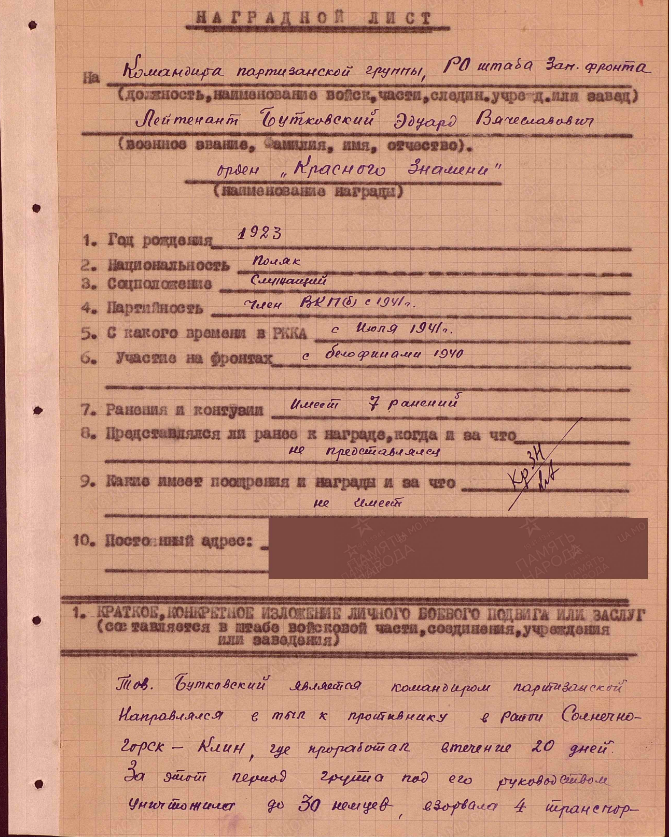 НАГРАДНОЙ ЛИСТ
На Командира партизанской группы, РО штаба Зап. фронта
(должность, наименование войск, части, следин. учрежд. или завед)
Лейтенант Бутковский Эдуард Вячеславович
(военное звание, Фамилия, имя, отчество).
орден „Красного Знамени"
(наименование награды)
1. Год рождения 1923
2. Национальность Поляк
3. Соцположение Служащий
4. Партийность член ВКП(б) с 1941г.
5. С какого времени в РККА с Июля 1941г.
6. Участие на фронтах с белофинами 1940
7. Ранения и контузии Имеет 7 ранений
8. Представлялся ли ранее к награде, когда и за что
не представлялся
КрЗН
9. Какие имеет поощрения и награды и за что
не имеет
10. Постоянный адрес:
ПАМЯТЬ НАРОДА
ПАМЯТЬ НАРОДА
1. КРАТКОЕ, КОНКРЕТНОЕ ИЗЛОЖЕНИЕ ЛИЧНОГО БОЕВОГО ПОДВИГА ИЛИ ЗАСЛУГ
(составляется в штабе войсковой части, соединения, учреждения
или заведения)
Тов. Бутковский является командиром партизанской
Направлялся в тыл к противнику в район Солнечно-
горск – Клин, где проработал втечение 20 дней.
За этот период группа под его руководством
уничтожила до 30 немцев, взорвала 4 транспор-